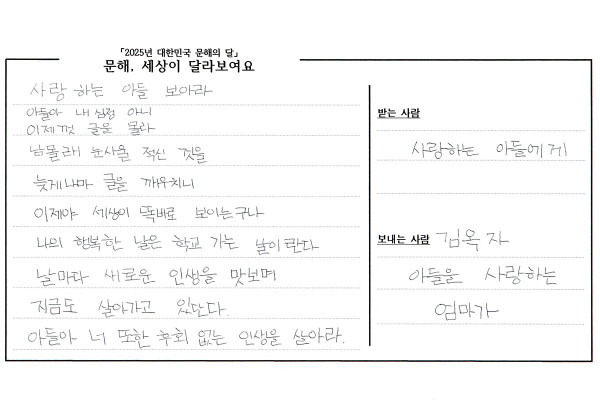 「2025년 대한민국 문해의 달」
문해, 세상이 달라보여요
사랑 하는 아들 보아라
아들아 내 심정 아니
이제껏 글을 몰라
남몰래 눈사울 적신 것을
늦게나마 글을 깨우치니
이제야 세상이 똑바로 보이는구나
나의 행복한 날은 학교 가는 날이란다
날마다 새로운 인생을 맛보며
지금도 살아가고 있단다.
아들아 너 또한 후회 없는 인생을 살아라.
받는 사람
사랑하는 아들에게
보내는 사람 김옥자
아들을 사랑하는
엄마가